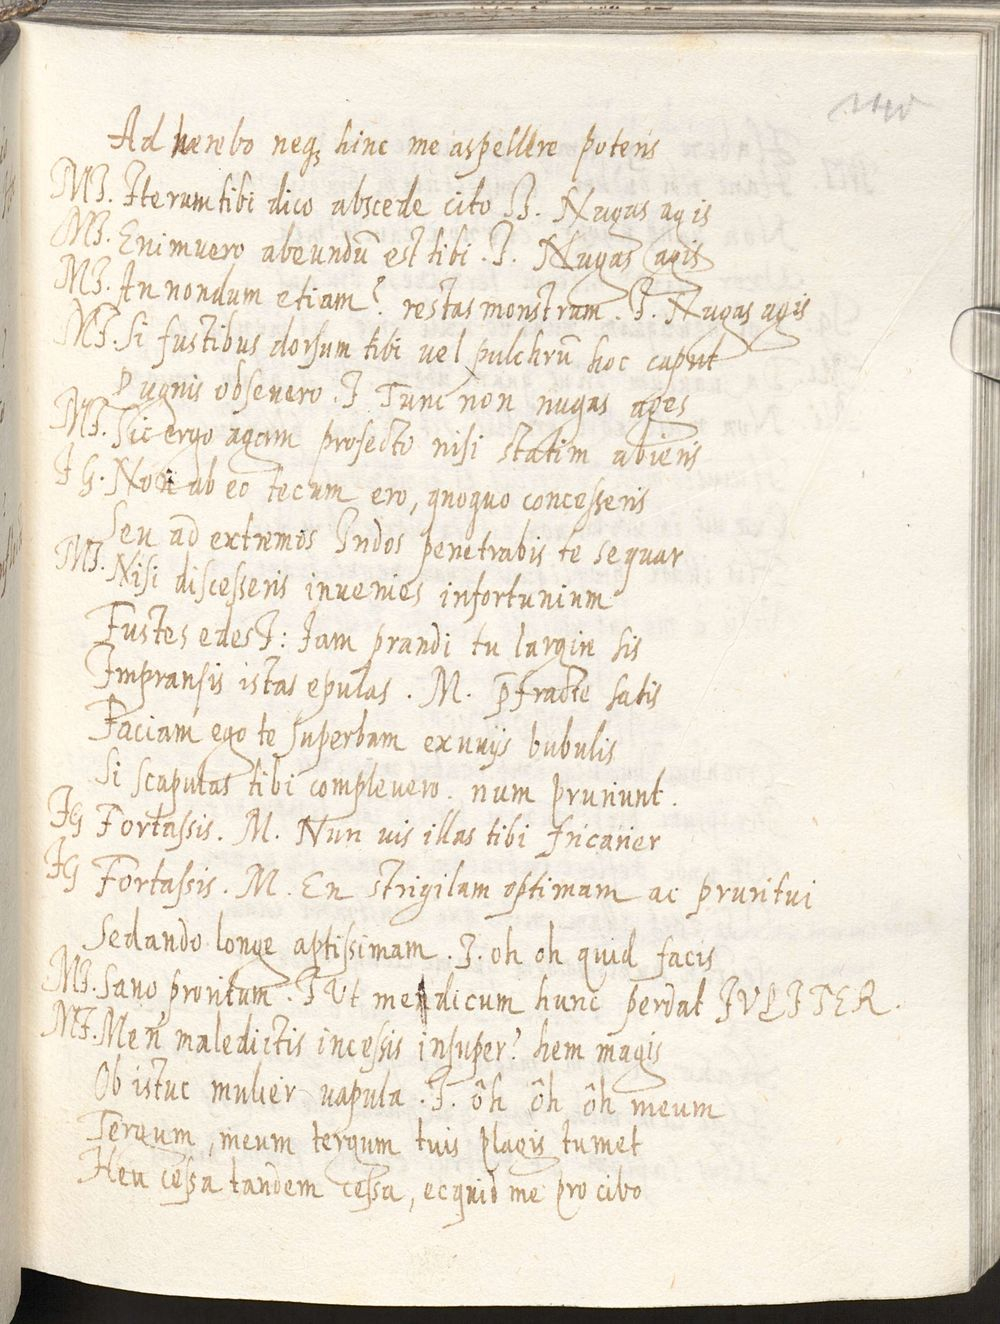 Adhaerebo neq; hinc me aspellere poteris
MI. Iterum tibi dico abscede cito II. Nugas agis
MI. Enimuero abeundū est tibi . I. Nugas agis
MI. An nondum etiam? restas monstrum . I. Nugas agis
MI. Si fustibus dorsum tibi vel pulchrū hoc caput
Pugnis obseuero . I Tunc non nugas ages
MI. Sic ergo agam profecto nisi statim abieris
IG. Non ab eo tecum ero, quoquo concesseris
Seu ad extremos Indos penetrabis te sequar
MI. Nisi discesseris inuenies infortunium
Fustes edes I: Iam prandi tu largire sis
Impransis istas epulas . M. p̄fracte satis
Faciam ego te superbam exuuijs bubulis
Si scapulas tibi compleuero . num prurunt .
IG Fortassis . M. Nun uis illas tibi fricarier
IG Fortassis . M. En strigilam optimam ac pruritui
Sedando longe aptissimam . I. oh oh quid facis
MI. Sano, proritum . I Ut mendicum hunc perdat IVPITER .
MI. Men maledictis incessis insuper? hem magis
Ob istuc mulier vapula . I. ôh ôh ôh meum
Tergum, meum tergum tuis plagis tumet
Heu cessa tandem cessa, ecquid me pro cibo